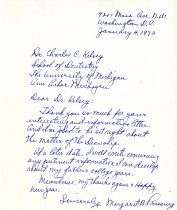 4201 Mass. Ave. N.W.
Washington D.C.
January 4, 1973
Dr. Charles C. Kelsey
School of Dentistry
The University of Michigan
Ann Arbor, Michigan
Dear Dr. Kelsey:
Thank you so much for your
interesting and informative letter
and I'm glad to be set right about
the matter of the Deanship.
At a later date, I will write concerning
any pertinent information I can develop
about my father's college years.
Meantime, my thanks again & Happy
new year.
Sincerely, Margaret B.